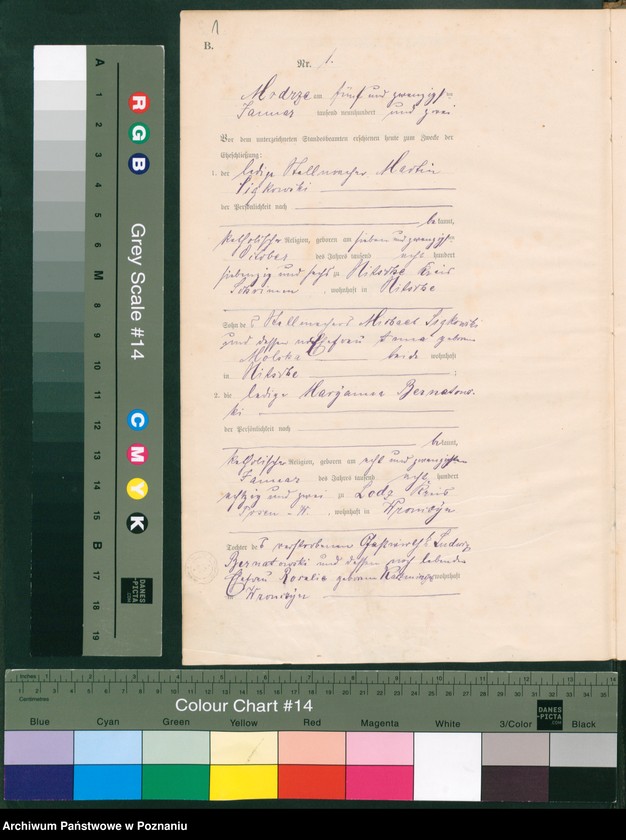 1
B.
Nr. 1.
Modrze am fünf und zwanzigst
Januar tausend neunhundert und zwei
Vor dem unterzeichneten Standesbeamten erschienen heute zum Zwecke der
Eheschließung:
1. der ledige Stellmacher Martin
der Persönlichkeit nach
bekannt,
katholischer Religion, geboren am sieben und zwanzigst
Oktober des Jahres tausend acht hundert
siebenzig und sechs zu Kreis
Schrimm, wohnhaft in
Sohn des Stellmachers Michael
und dessen Ehefrau Anna geboren
beide wohnhaft
in
2. die ledige Maryanna Bernatows-
ki
der Persönlichkeit nach
bekannt,
katholische Religion, geboren am acht und zwanzigsten
Januar des Jahres tausend acht hundert
achtzig und zwei zu Lodz Kreis
Posen - W., wohnhaft in
Tochter des verstorbenen Gastwirths Ludwig
Bernatowski und dessen noch lebenden
Ehefrau Rosalie geboren wohnhaft
in
A 1 2 3 4 5 6 M 8 9 10 11 12 13 14 15 B 17 18 19
R G B
Grey Scale #14
C M Y K
DANES
-PICTA
.COM
Inches
Centimetres
Colour Chart #14
DANES
-PICTA
.COM
Blue Cyan Green Yellow Red Magenta White 3/Color Black
Archiwum Państwowe w Poznaniu